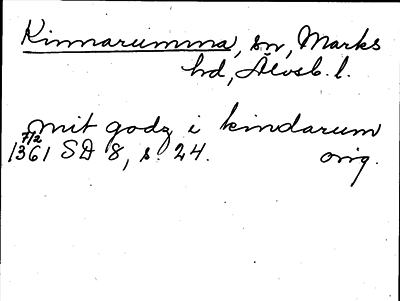 Kinnarumma, sn, Marks
hd, Älvsb. l.
mit godz i kindarum
7/2
1361 SD 8, s. 24. orig.